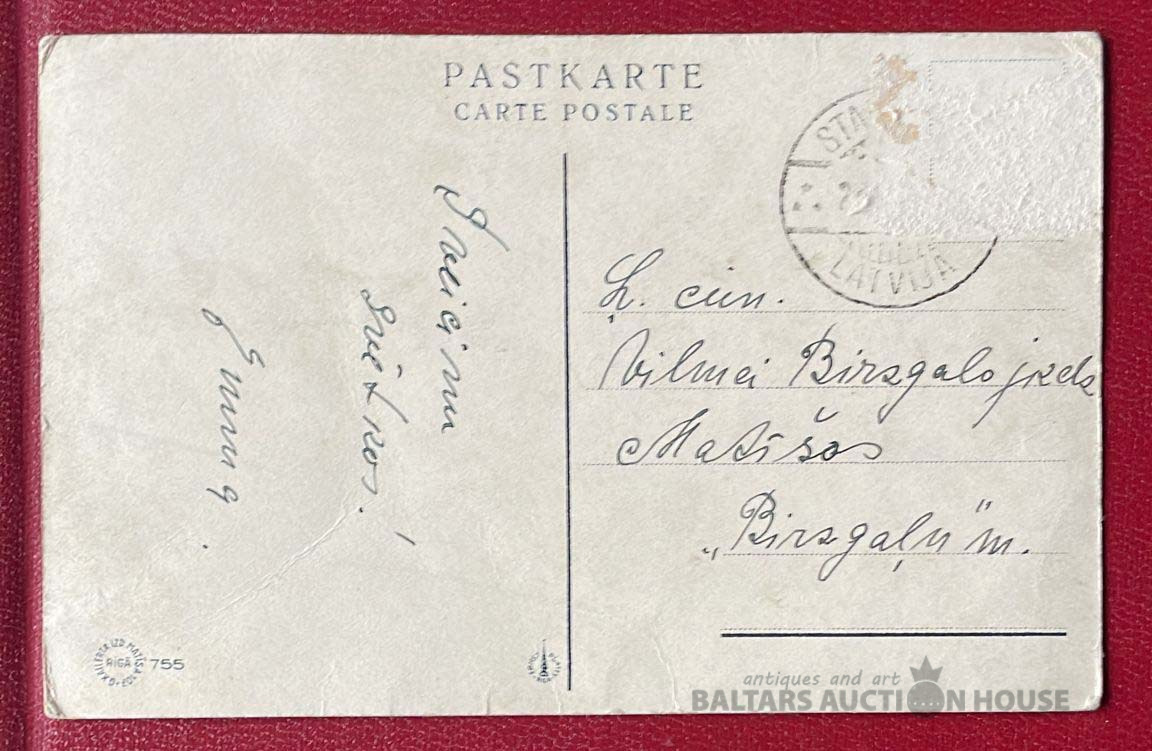 PASTKARTE
CARTE POSTALE
STA
2
LATVIJA
Sveicinu
svētkos!
Ļ. cien.
Vilmai Birzgalo jkdz
Matīšos
„Birzgaļu" m.
RIGĀ 755
antiques and art
BALTARS AUCTION HOUSE